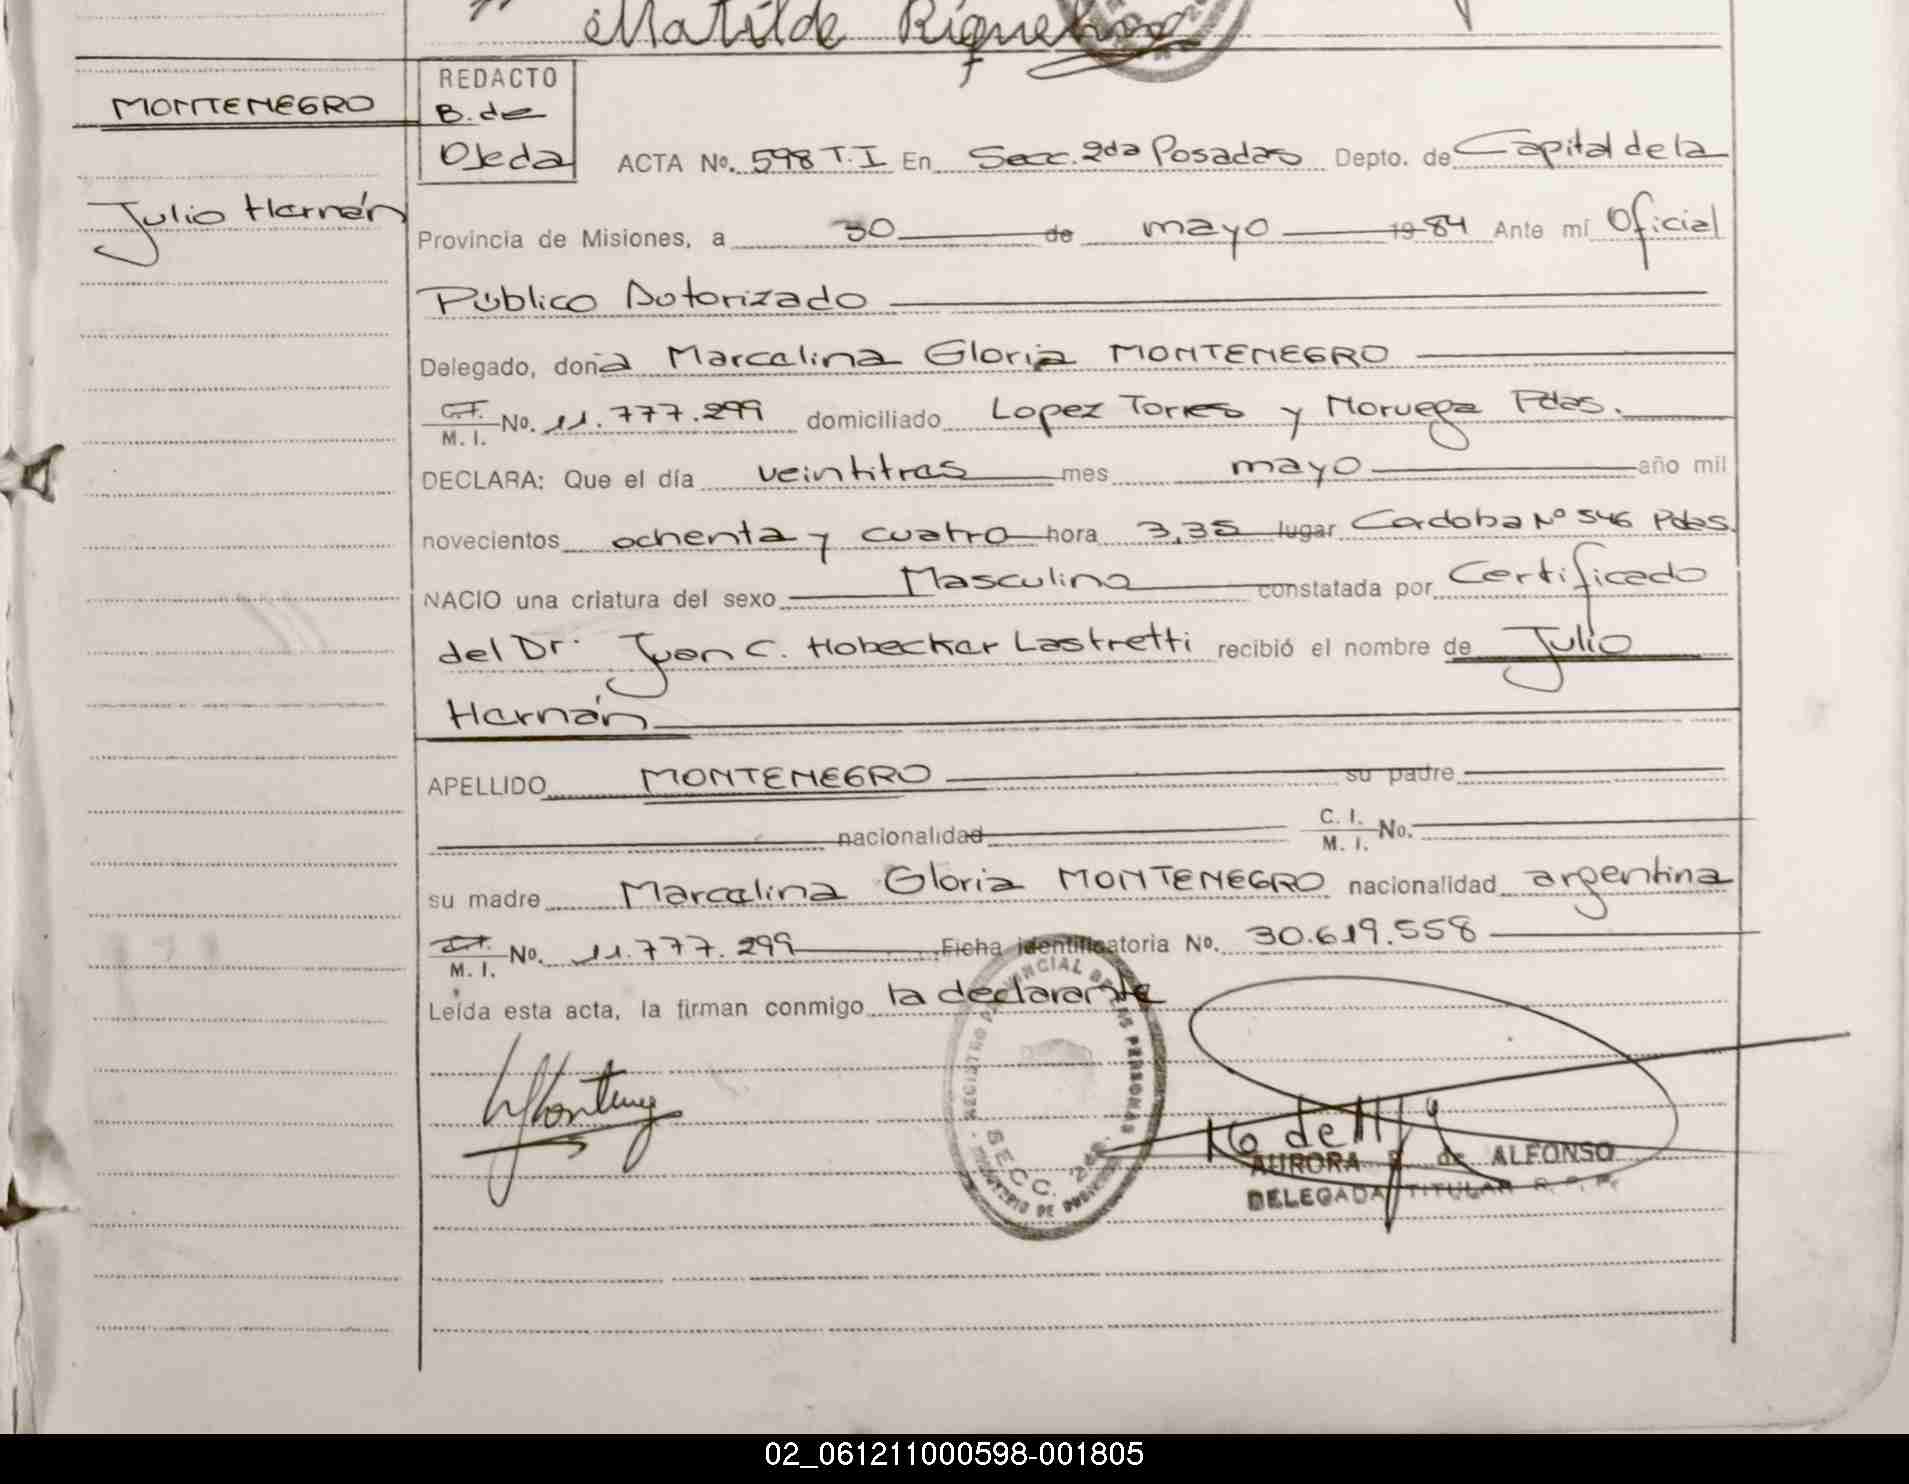 Matilde Riquelme
MONTENEGRO
Julio Hernán
REDACTO
B. de
Ojeda
ACTA No. 598 T.I En Secc. 2da Posadas Depto. de Capital de la
Provincia de Misiones, a 30 de mayo 1984 Ante mí Oficial
Público Autorizado
Delegado, doña Marcelina Gloria MONTENEGRO
C.I. M. I. No. 11.777.299 domiciliado Lopez Torres y Noruega Pdas.
DECLARA: Que el día veintitres mes mayo año mil
novecientos ochenta y cuatro hora 3,35 lugar Cordoba Nº 546 Pdas.
NACIO una criatura del sexo Masculino constatada por Certificado
del Dr. Juan C. Hobecker Lastretti recibió el nombre de Julio
Hernán
APELLIDO MONTENEGRO su padre
nacionalidad C. I. M. I. No.
su madre Marcelina Gloria MONTENEGRO nacionalidad argentina
C.I. M. I. No. 11.777.299 Ficha identificatoria No. 30.619.558
Leída esta acta, la firman conmigo la declarante
REGISTRO PROVINCIAL DE LAS PERSONAS
SECC. 2da.
AURORA de ALFONSO
DELEGADA TITULAR R. P. P.
02_061211000598-001805